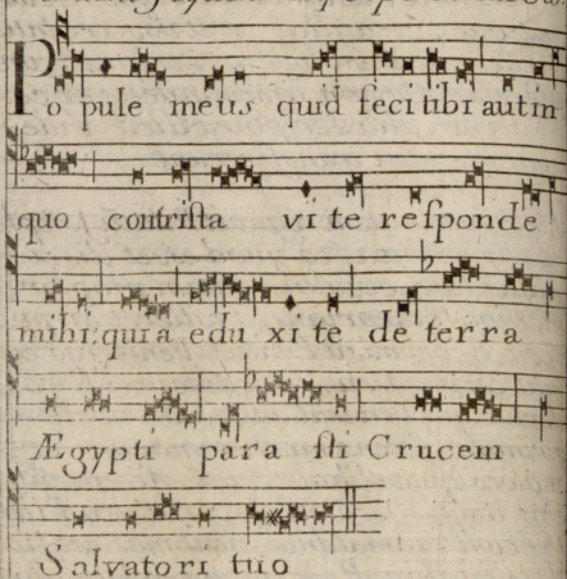 Popule meus quid feci tibi aut in
quo contrista vi te responde
mihi: quia edu xi te de terra
Ægypti para sti Crucem
Salvatori tuo